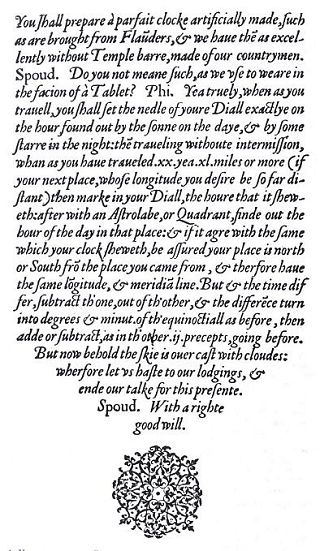 You ſhall prepare à parfait clocke artificially made, ſuch
as are brought from Flaũders, & we haue thẽ as excel-
lently without Temple barre, made of our countrymen.
Spoud. Do you not meane ſuch, as we vſe to weare in
the facion of à Tablet? Phi. Yea truely, when as you
trauell, you ſhall ſet the nedle of youre Diall exactlye on
the hour found out by the ſonne on the daye, & by ſome
ſtarre in the night: thẽ traueling withoute intermiſſion,
whan as you haue traueled. xx. yea. xl. miles or more (if
your next place, whoſe longitude you deſire be ſo far di-
ſtant) then marke in your Diall, the houre that it ſhew-
eth: after with an Aſtrolabe, or Quadrant, finde out the
hour of the day in that place: & if it agree with the ſame
which your clock ſheweth, be aſſured your place is north
or South frõ the place you came from, & therfore haue
the ſame lõgitude, & meridiã line. But & the time dif
fer, ſubtract th'one, out of th'other, & the differẽce turn
into degrees & minut. of th'equinoctiall as before, then
adde or ſubtract, as in th'other. ij. precepts, going before.
But now behold the ſkie is ouer caſt with cloudes:
wherfore let vs haſte to our lodgings, &
ende our talke for this preſente.
Spoud. With a righte
good will.